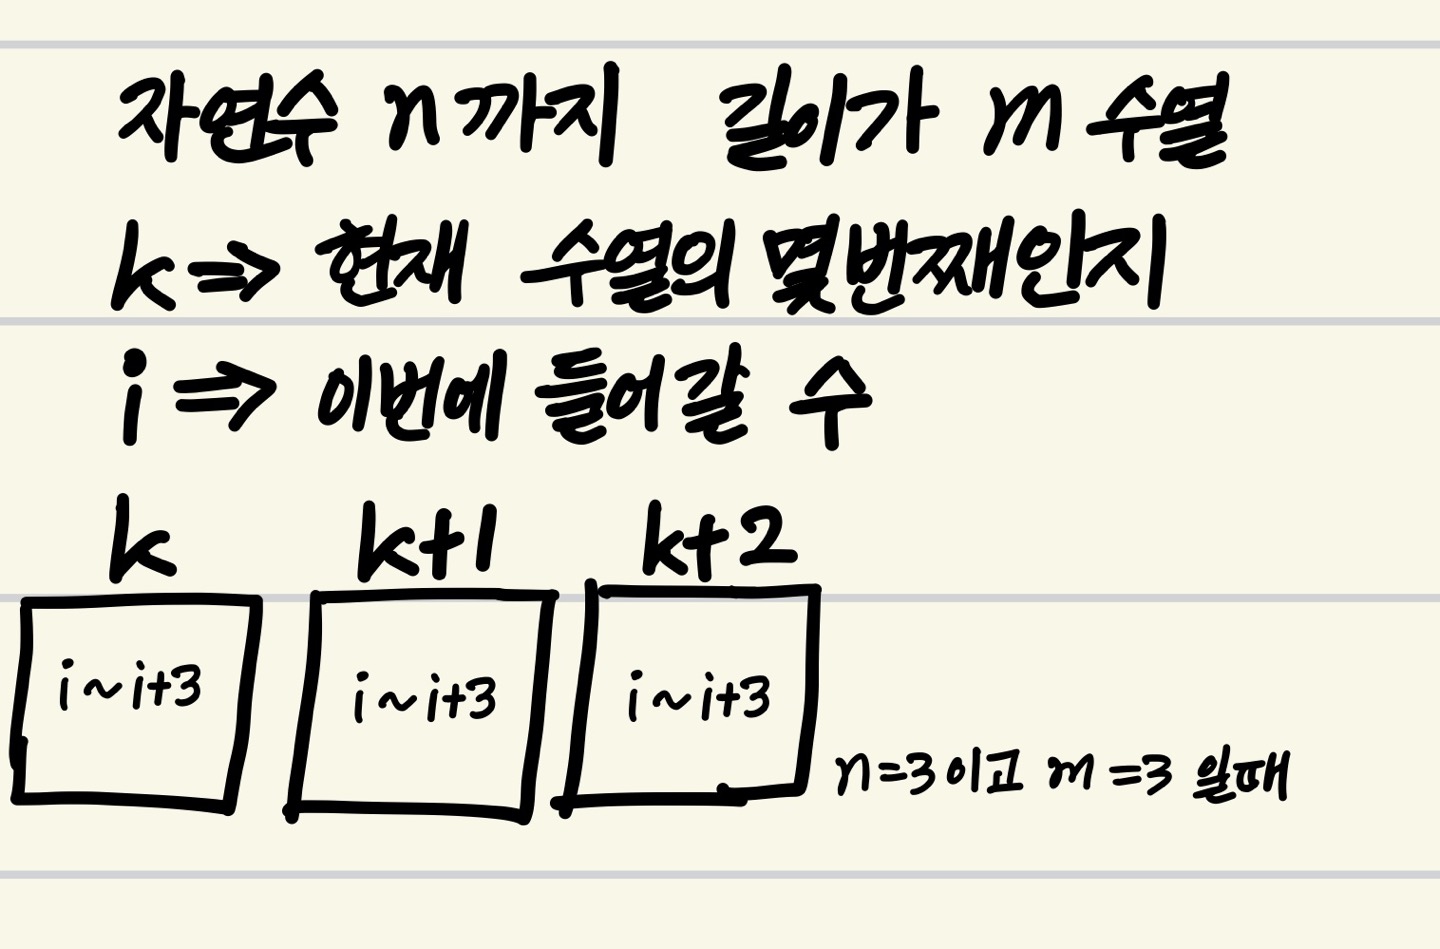 자연수 n까지 길이가 m 수열
k ⇒ 현재 수열의 몇번째인지
i ⇒ 이번에 들어갈 수
k k+1 k+2
i ~ i+3 i ~ i+3 i ~ i+3
n=3이고 m=3 일때